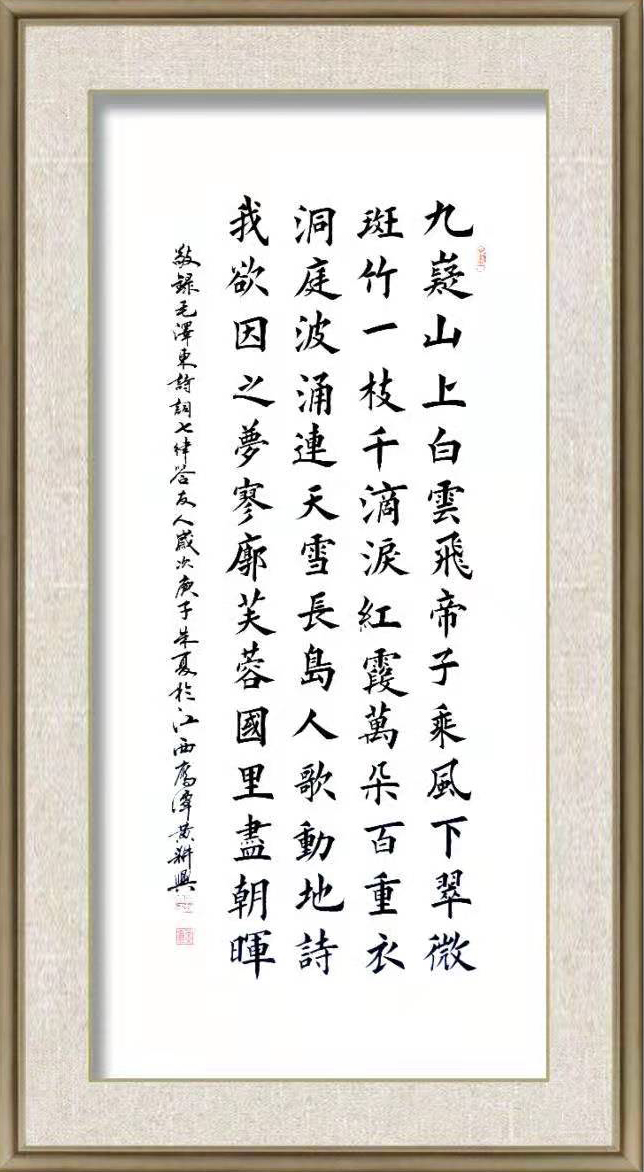 九嶷山上白雲飛帝子乘風下翠微
斑竹一枝千滴淚紅霞萬朵百重衣
洞庭波涌連天雪長島人歌動地詩
我欲因之夢寥廓芙蓉國里盡朝暉
敬錄毛澤東詩詞七律答友人歲次庚子朱夏於江西鷹潭黃耕興